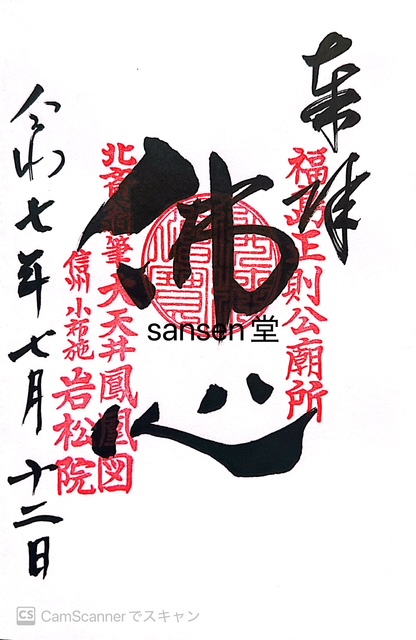 奉拝
福島正則公廟所
佛心
北斎翁筆 大天井鳳凰図
信州 小布施 岩松院
令和七年七月十二日
sansen堂
CS CamScannerでスキャン